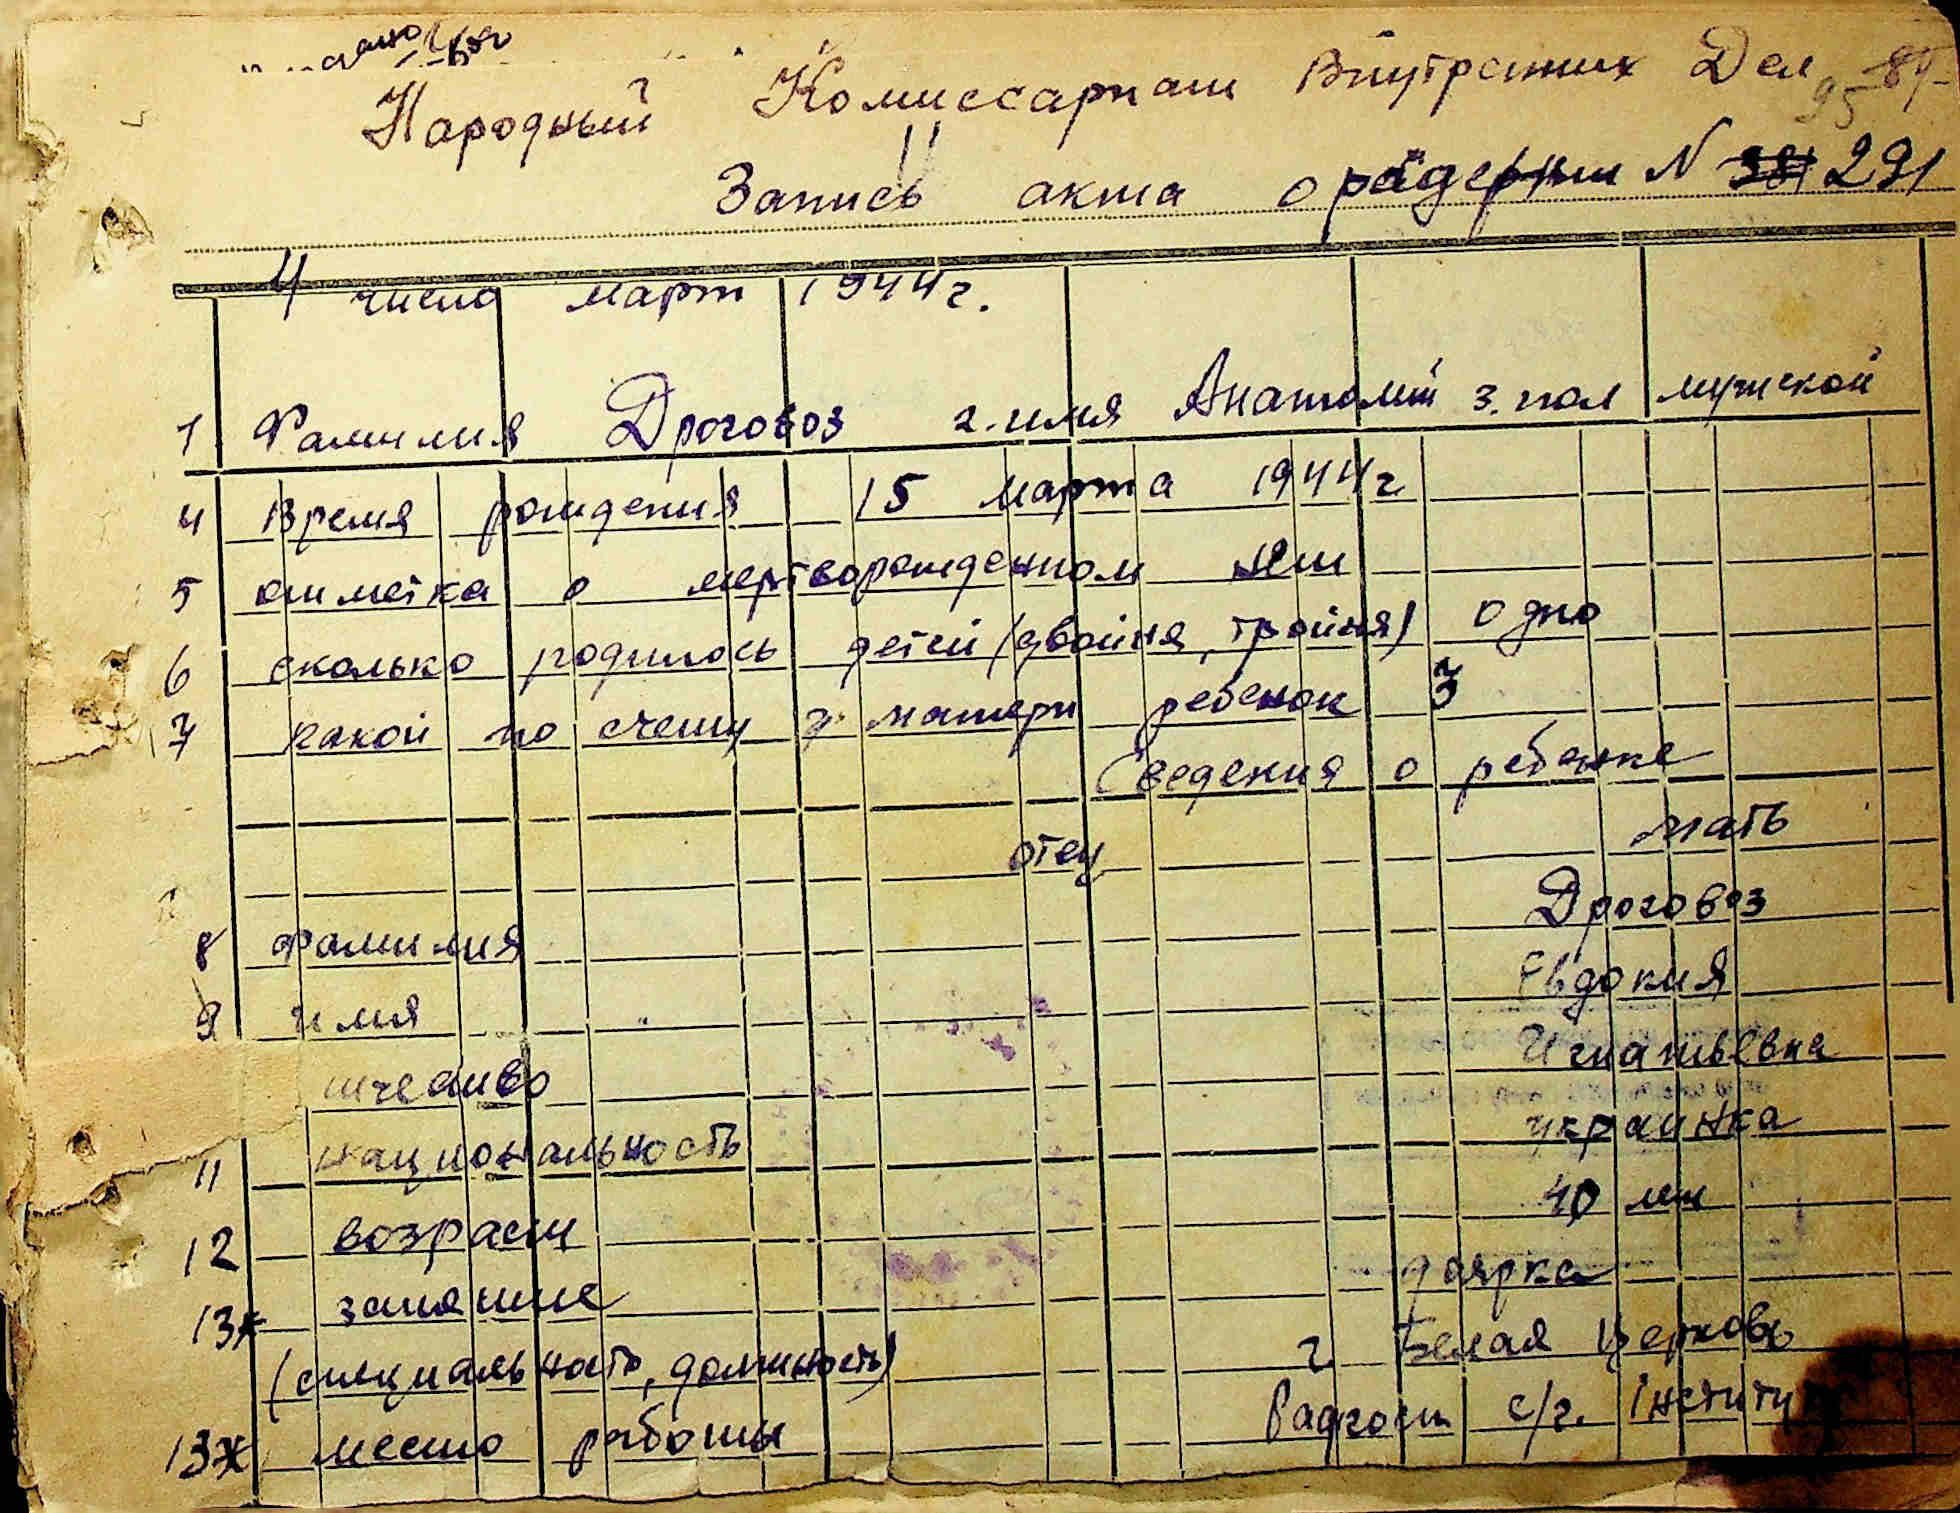 Народный Комиссариат Внутрених Дел
95 84
Запись акта о рождении N 381 291
4 число март 1944 г.
1 Фамилия Дроговоз 2. имя Анатолий 3. пол мужской
4 Время рождения 15 марта 1944 г
5 отметка о мертворожденном нет
6 сколько родилось детей (двойня, тройня) одно
7 какой по счету у матери ребенок 3
Сведения о ребенке
отец мать
8 фамилия Дроговоз
9 имя Евдокия
тчество Игнатьевна
11 национальность украинка
12 возраст 40 лет
13* занятие доярка
(специальность, должность) г. Белая Церковь
13* место работы Радгосп с/г. Інститут